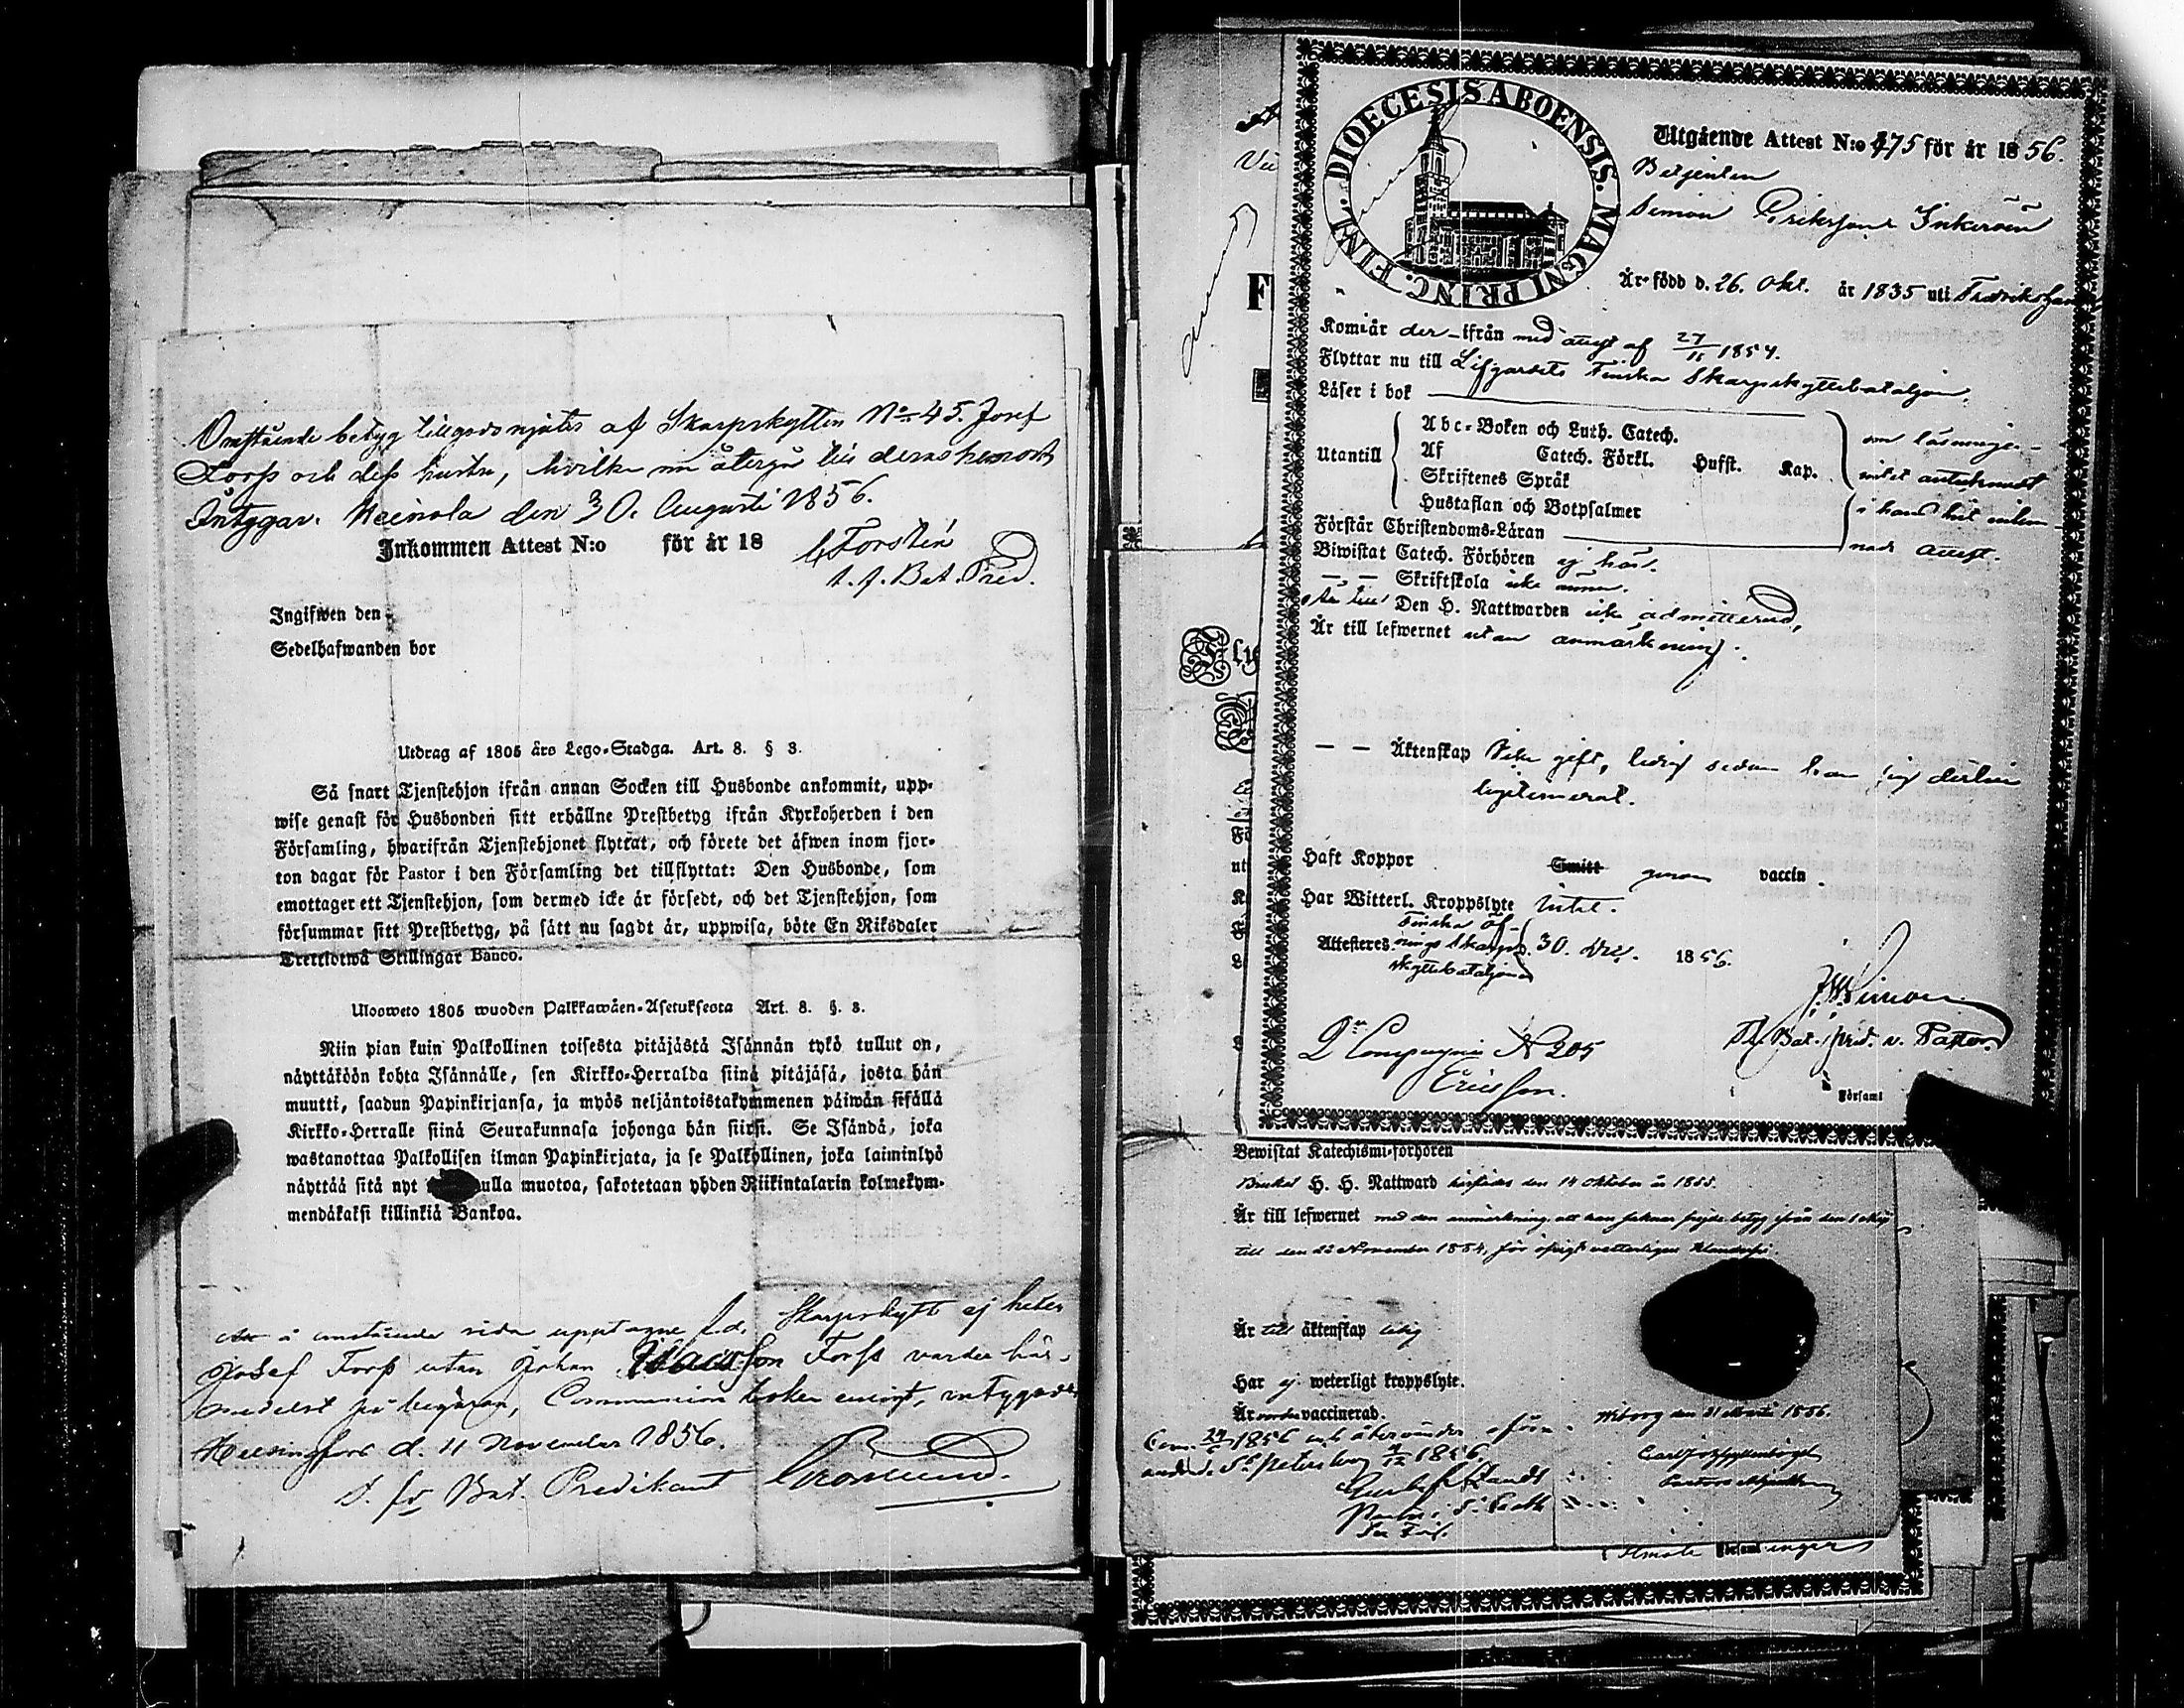 Omstående betyg tillgodonjutes af Skarpskytten No 45. Josef
Forss och dess hustru, hvilka nu återgå till deras hemort
Intygar. Heinola den 30. Augusti 1856.
Inkommen Attest N:o för år 18
Forstén
Bat. Pred.
Ingifwen den
Sedelhafwanden bor
Utdrag af 1805 års Lego-Stadga. Art. 8. § 3.
Så snart Tjenstehjon ifrån annan Socken till Husbonde ankommit, upp-
wise genast för Husbonden sitt erhållne Prestbetyg ifrån Kyrkoherden i den
Församling, hwarifrån Tjenstehjonet flyttat, och förete det äfwen inom fjor-
ton dagar för Pastor i den Församling det tillflyttat: Den Husbonde, som
emottager ett Tjenstehjon, som dermed icke är försedt, och det Tjenstehjon, som
försummar sitt Prestbetyg, på sätt nu sagdt är, uppwisa, böte En Riksdaler
Trettiotwå Skillingar Banco.
Ulosweto 1805 wuoden Palkkawäen-Asetuksesta Art. 8. §. 3.
Niin pian kuin Palkollinen toisesta pitäjästä Isännän tykö tullut on,
näyttäköön kohta Isännälle, sen Kirkko-Herralda siinä pitäjäsä, josta hän
muutti, saadun Papinkirjansa, ja myös neljäntoistakymmenen päiwän sisällä
Kirkko-Herralle siinä Seurakunnasa johonga hän siirsi. Se Isändä, joka
wastanottaa Palkollisen ilman Papinkirjata, ja se Palkollinen, joka laiminlyö
näyttää sitä nyt ulla muotoa, sakotetaan yhden Riikintalarin kolmekym-
mendäkaksi killinkiä Bankoa.
Att å omstående sida upptagne f.d. Skarpskytt ej heter
Josef Forss utan Johan Isacsson Forss varder här-
medelst på begäran, Communion boken enligt, intygadt.
Helsingfors d. 11 November 1856.
Bat. Predikant
DIOECESIS ABOENSIS. MAGNI PRINC. FINL.
Utgående Attest N:o 475 för år 1856.
Betjenten
Simon Eriksson Inkeroin
Är född d. 26. Okt. år 1835 uti Fredrikshamn
Komiär der-ifrån med attest af 27/11 1854.
Flyttar nu till Lifgardets Finska Skarpskyttebataljon.
Läser i bok
Abc-Boken och Luth. Catech.
Utantill Af Catech. Förkl. Hufst. Kap.
Skriftenes Språk
Hustaflan och Botpsalmer
om läsningen
intet antecknadt
i hans hit
nade attest.
Förstår Christendoms-Läran
Biwistat Catech. Förhören ej här.
— — Skriftskola icke
Är till Den H. Nattwarden icke admitterad,
Är till lefwernet utan anmärkning.
— — Äktenskap Icke gift, ledig sedan han sig dertill
legitimerat.
Haft Koppor Smitt genom vaccin.
Har Witterl. Kroppslyte intet.
Attesteres Finska Skarpskyttebataljonen d. 30. Dec. 1856.
Compagnie N 205
Ericsson.
Bat. pred. v. Pastor.
Förfaml
Bewistat Katechismi-förhören
Brukat H. H. Nattward härstädes den 14 oktober år 1855.
Är till lefwernet med den anmärkning att han saknar frejde betyg ifrån den 1 Maj
till den 22 November 1854, för öfrigt
Är till äktenskap ledig
Har ej weterligt kroppslyte.
Är vaccinerad.
Wiborg den 31 1856.
Com. 1856
St Petersburg 1856.
Församl